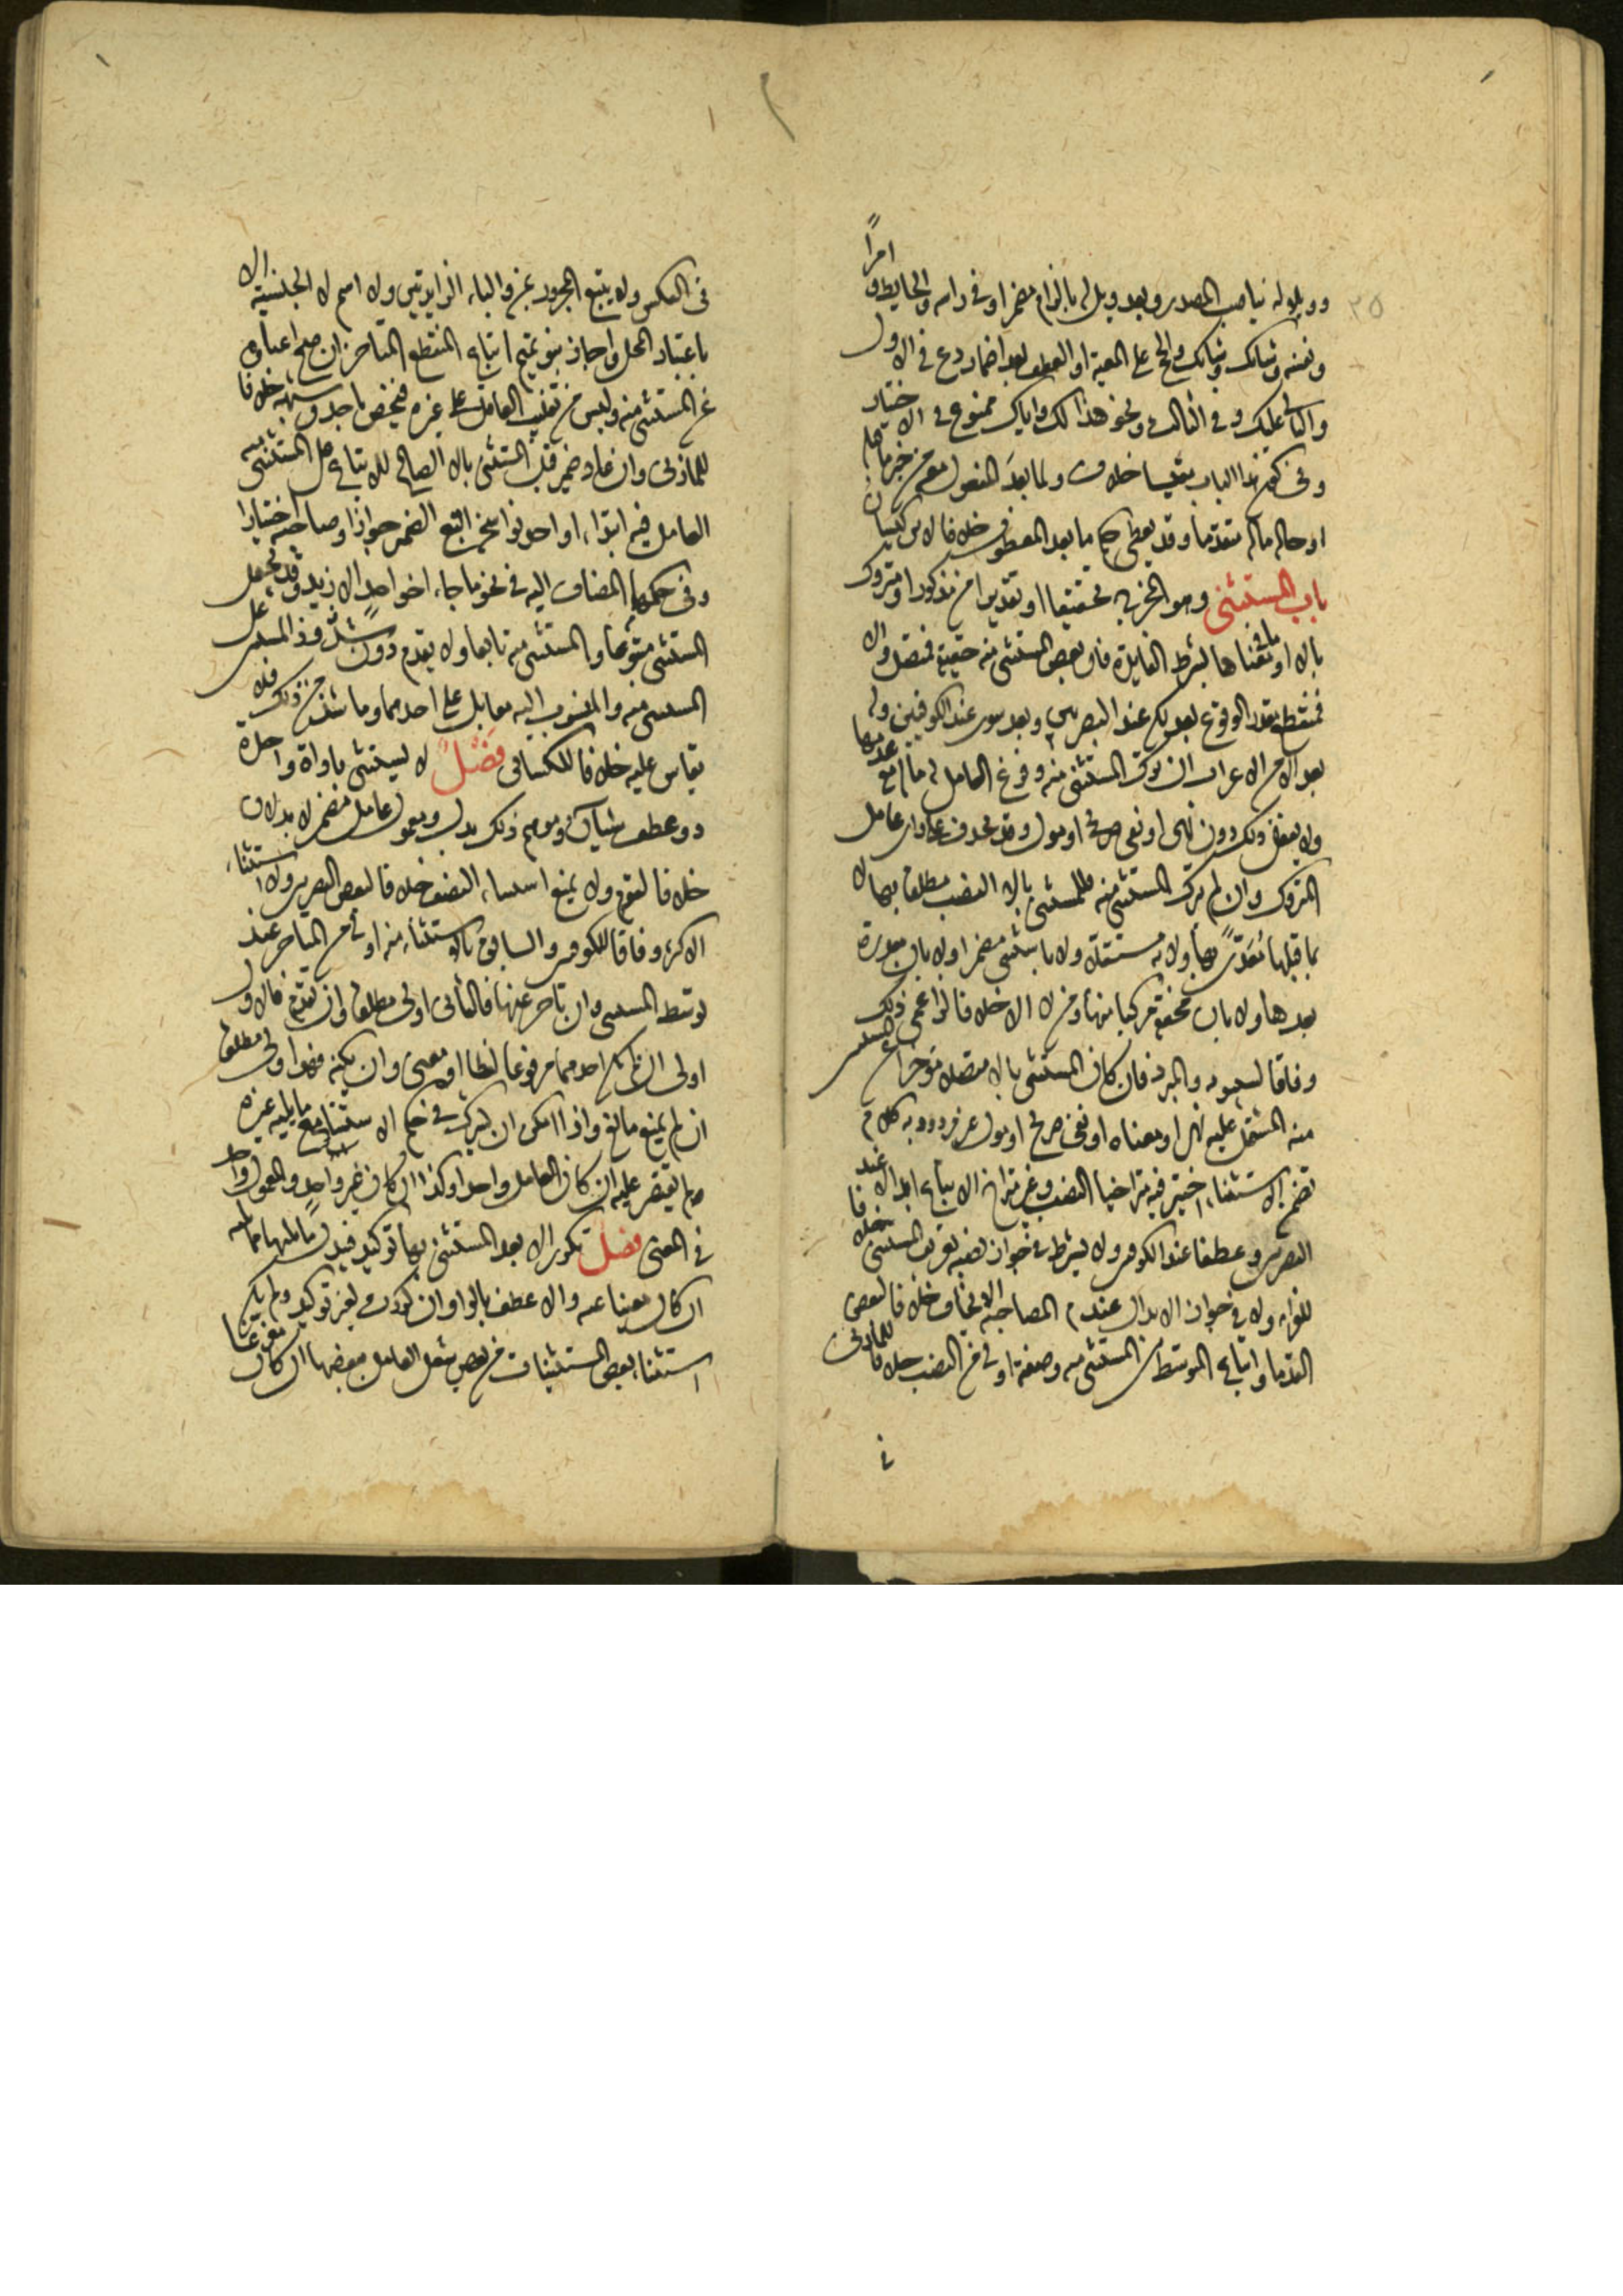 امرا
وويلوله بناصب المصدر وبعد ويل له بالزم مضمرا وفى راسه والحايط و
ونفسه وشانك وشانك والحج على المعية او العطف بعد اضمار دع فى الاول
والثانى عليك وفى الثالث ونحو هذا لك واياك ممنوع فى الاختيار
وفى كون هذا الباب مقيسا خلاف ولما بعد المفعول معه من خبر ما قبله
او حاله ماله متقدما وقد يعطى حكم ما بعد المعطوف خلافا لابن كيسان
باب المستثنى وهو المخرج تحقيقا او تقديرا من مذكور او متروك
بالا او ما فى معناها بشرط الفايدة فان كان بعض المستثنى منه حقيقة فمتصل والا
فمنقطع مقدر الوقوع بعد لكن عند البصريين وبعد سوى عند الكوفيين وله
بعد الا من الاعراب ان ترك المستثنى منه وفرغ العامل له ما له مع عدمها
ولا يفعل ذلك دون نهى او نفى صريح او مؤول وقد يحذف على راى عامل
المتروك وان لم يترك المستثنى منه فللمستثنى بالا النصب مطلقا بها لا
بما قبلها معدى بها ولا به مستقلا ولا باستثنى مضمرا ولا بان مقدرة
بعدها ولا بان مخففة مركبا منها ومن لا الا خلافا لزاعمى ذلك
وفاقا لسيبويه والمبرد فان كان المستثنى بالا متصلا مؤخرا عن المستثنى
منه المشتمل عليه نهى او معناه او نفى صريح او مؤول غير مردود به كلام
تضمن الاستثناء اختير فيه متراخيا النصب وغير متراخ الاتباع ابدالا عند
البصريين وعطفا عند الكوفيين ولا يشترط فى جواز نصبه تعريف المستثنى منه خلافا
للفراء ولا فى جواز الابدال عدم الصلاحية للايجاب خلافا لبعض
القدما واتباع المتوسط بين المستثنى منه وصفته اولى من النصب خلافا للمازنى
فى
فى العكس ولا يتبع المجرور بمن والباء الزايدتين ولا اسم لا الجنسية الا
باعتبار المحل واجاز بنو تميم اتباع المنقطع المتاخر ان صح اغناؤه
عن المستثنى منه وليس من تغليب العاقل على غيره فيختص باحد وشبهه خلافا
للمازنى وان عاد ضمير قبل المستثنى بالا الصالح للاتباع على المستثنى منه
العامل فيه ابتداء او احد نواسخه اتبع الضمير جوازا وصاحبه اختيارا
وفى حكمهما المضاف اليه فى نحو ما جاء اخو احد الا زيد وقد يجعل
المستثنى متبوعا والمستثنى منه تابعا ولا يقدم دون شذوذ المستثنى على
المستثنى منه والمنسوب اليه معا بل على احدهما وما شذ من ذلك فلا
يقاس عليه خلافا للكسائى فصل لا يستثنى باداة واحدة
دون عطف شيان وموهم ذلك بدل ومعمول عامل مضمر لا بدلان
خلافا لقوم ولا يمتنع استثناء النصف خلافا لبعض البصريين ولا استثناء
الاكثر وفاقا للكوفيين والسابق بالاستثناء منه اولى من المتاخر عند
توسط المستثنى وان تاخر عنهما فالثانى اولى مطلقا وان تقدم فالاول
اولى ان لم يكن احدهما مرفوعا لفظا او معنى وان يكنه فهو اولى مطلقا
ان لم يمنع مانع واذا امكن ان يشرك فى حكم الاستثناء مع ما يليه غيره
لم يقتصر عليه ان كان العامل واحدا وكذا ان كان غير واحد والمعمول واحد
فى المعنى فصل تكرر الا بعد المستثنى بها توكيدا فيبدل ما يليها مما تليه
ان كان مغنيا عنه والا عطف بالواو وان كررت لغير توكيد ولم يمكن
استثناء بعض المستثنيات من بعض شغل العامل ببعضها ان كان مفرغا